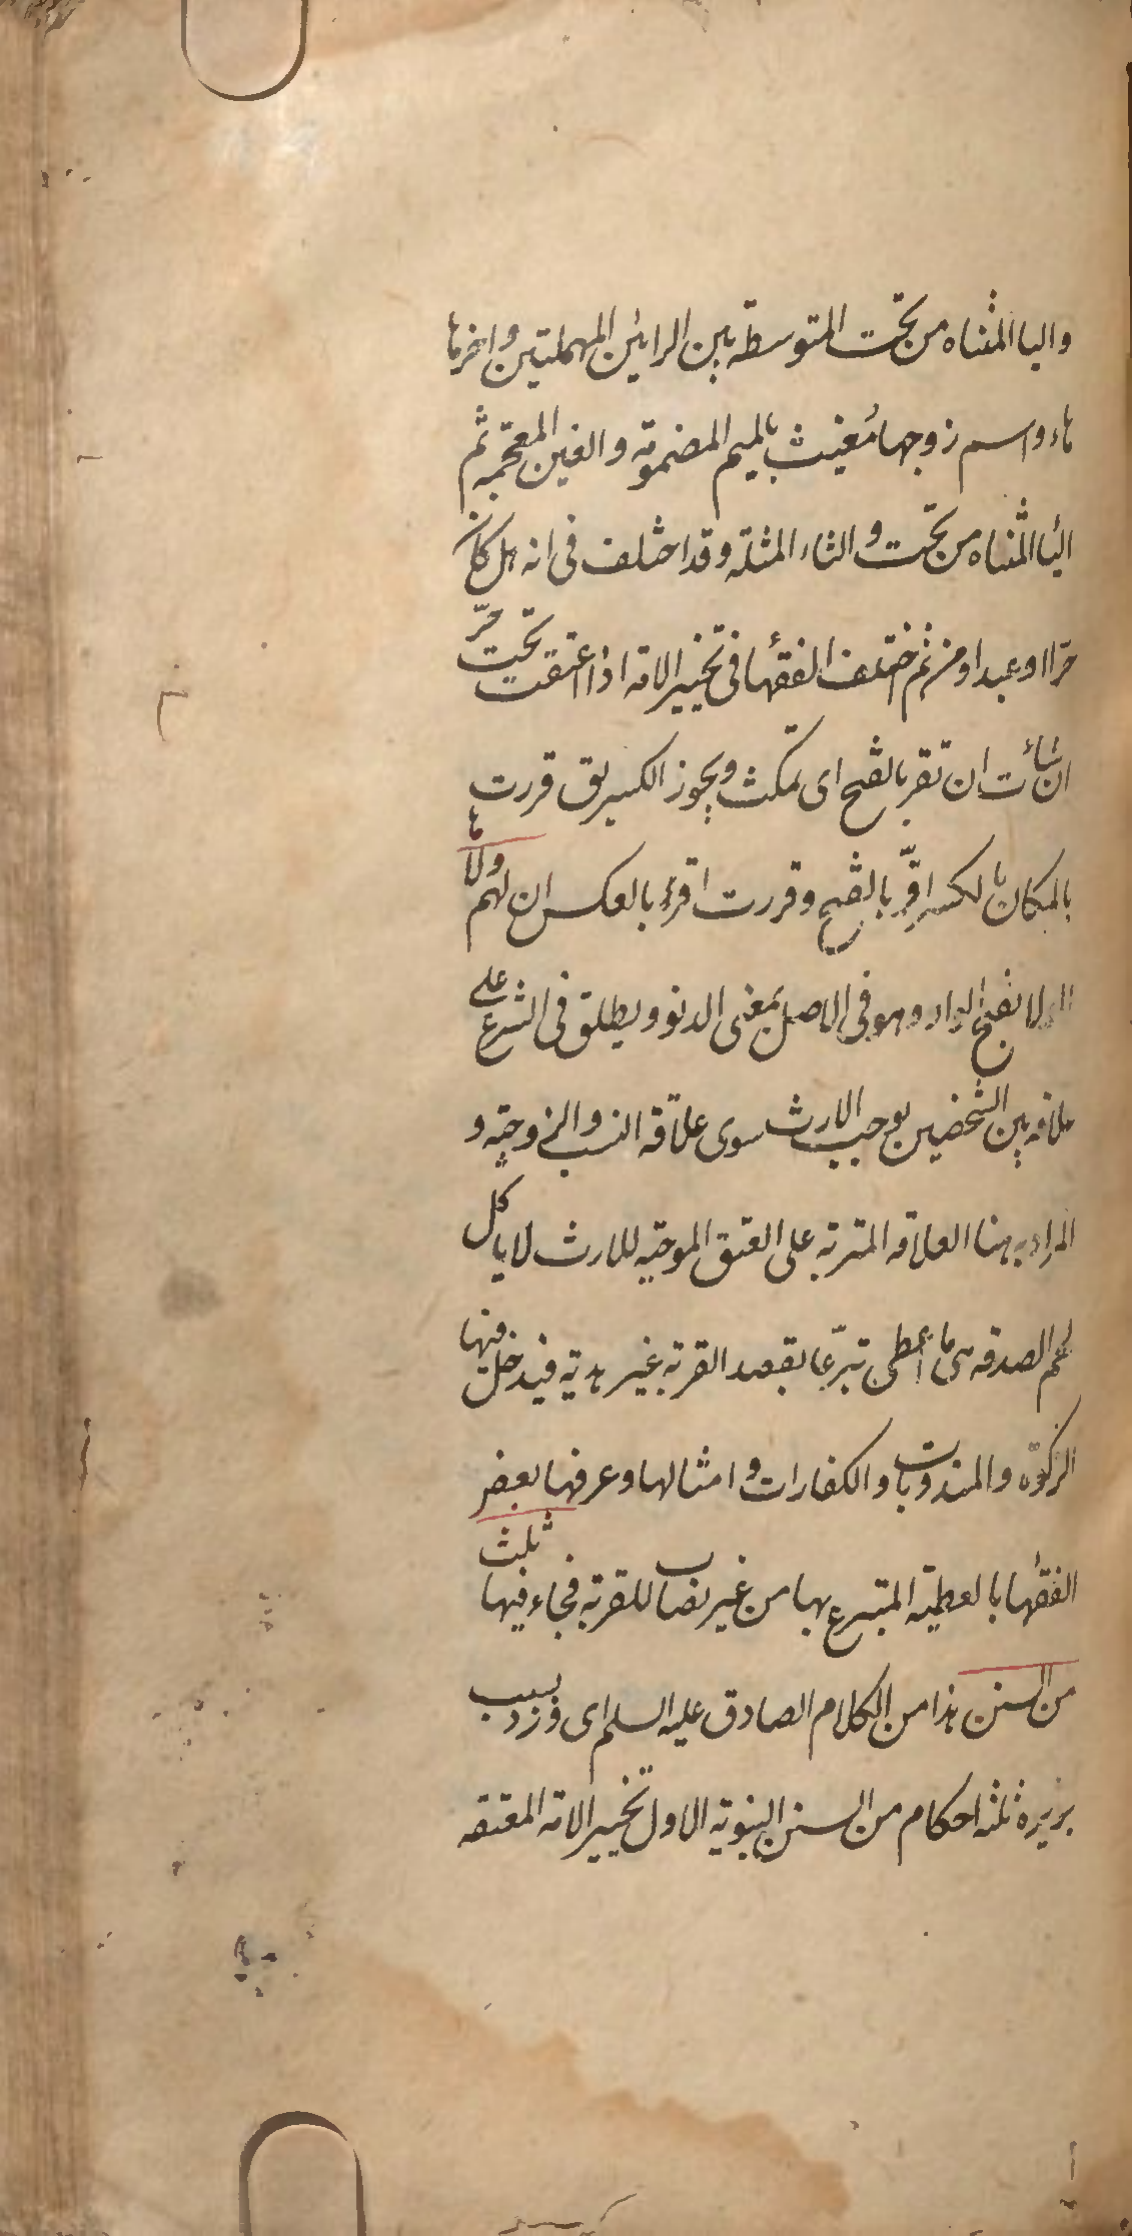 واليا المثناه من تحت المتوسطة بين الرائين المهملتين واخرها
هاء واسم زوجها مُغيث بالميم المضمومة والغين المعجمه ثم
اليا المثناه من تحت والثاء المثلثه وقد اختلف فى انه هل كان
حرّا او عبدا ومن ثم اختلف الفقهأ فى تخيير الامه اذا اعتقت تحت حرّ
ان شائت ان تقر بالفتح اى تمكث ويجوز الكسر يق قررت
بالمكان بالكسر اقرّ بالفتح وقررت اقرء بالعكس ان لهم ولاءها
الولا بفتح الواو وهو فى الاصل بمعنى الدنو ويطلق فى الشرع على
علاقه بين الشخصين يوجب الارث سوى علاقة النسب والزوجيّه و
المراد به هنا العلاقه المترتبه على العتق الموجبه للارث لا ياكل
لحم الصدقه هى ما اعطى تبرّعا بقصد القربه غير هديّة فيدخل فيها
الزكوة والمندوبات والكفارات وامثالها وعرفها بعض
الفقهأ بالعطيّه المتبرع بها من غير نصاب للقربه فجاء فيها ثلث
من السنن هذا من الكلام الصادق عليه السلم اى ورد بسبب
بريره ثلثه احكام من السنن النبويه الاول تخيير الامه المعتقه